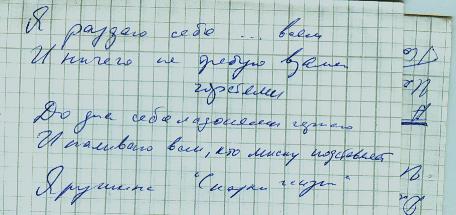 Я раздаю себя ... всем
И ничего не требую взамен
горстями
До дна себя ладонями черпаю
И наливаю всем, кто миску подставляет
"Сказки жизни"